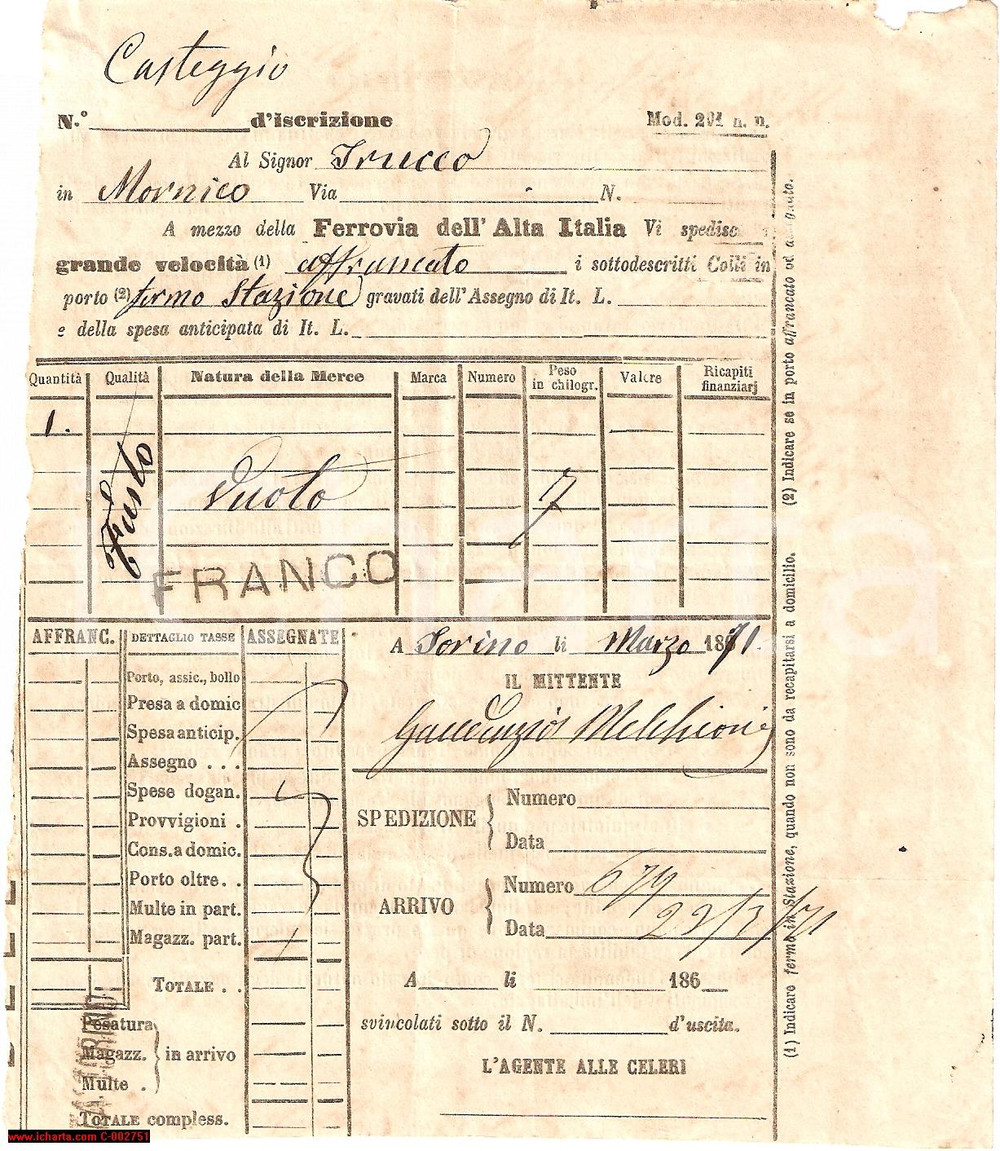 Casteggio
N.° d'iscrizione Mod. 201 n. n.
Al Signor Trucco
in Mornico Via N.
A mezzo della Ferrovia dell'Alta Italia Vi spedisc
grande velocità (1) affrancato i sottodescritti Colli in
porto (2) fermo Stazione gravati dell'Assegno di It. L.
e della spesa anticipata di It. L.
Quantità Qualità Natura della Merce Marca Numero Peso in chilogr. Valore Ricapiti finanziarj
1. Fusto Vuoto 7
FRANCO
AFFRANC. DETTAGLIO TASSE ASSEGNATE
Porto, assic., bollo
Presa a domic
Spesa anticip.
Assegno . . .
Spese dogan.
Provvigioni .
Cons. a domic.
Porto oltre. .
Multe in part.
Magazz. part.
TOTALE . .
Pesatura
Magazz. in arrivo
Multe .
TOTALE compless.
TORINO
A Torino li Marzo 1871.
IL MITTENTE
Gaudenzio Melchioni
SPEDIZIONE Numero
Data
ARRIVO Numero 679
Data 22/3/71
A li 186
svincolati sotto il N. d'uscita.
L'AGENTE ALLE CELERI
(1) Indicare fermo in Stazione, quando non sono da recapitarsi a domicilio. (2) Indicare se in porto affrancato od assegnato.
www.icharta.com C-002751